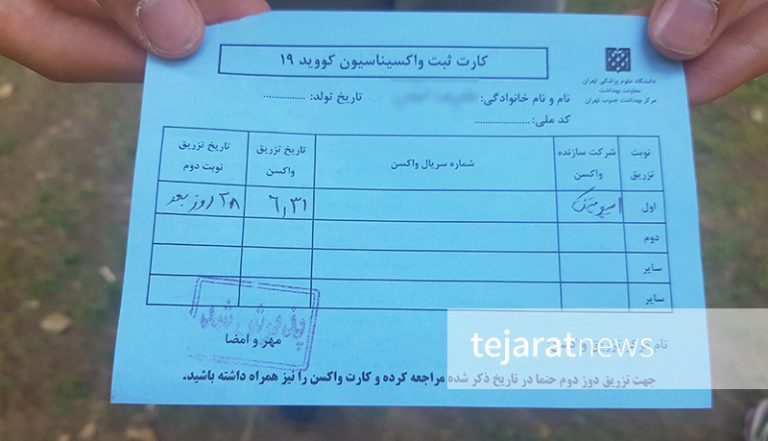 کارت ثبت واکسیناسیون کووید ۱۹
دانشگاه علوم پزشکی تهران
معاونت بهداشت
مرکز بهداشت جنوب تهران
نام و نام خانوادگی: تاریخ تولد: ...............
کد ملی: ....................
نوبت تزریق شرکت سازنده واکسن شماره سریال واکسن تاریخ تزریق واکسن تاریخ تزریق نوبت دوم
اول ۶,۳۱ ۲۸ روز بعد
دوم
سایر
سایر
مهر و امضا
نام
tejaratnews
جهت تزریق دوز دوم حتما در تاریخ ذکر شده مراجعه کرده و کارت واکسن را نیز همراه داشته باشید.